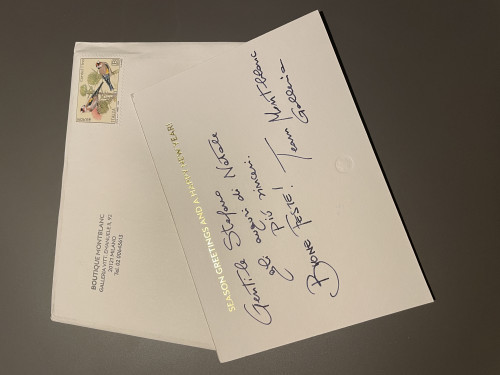 BOUTIQUE MONTBLANC
GALLERIA VITT. EMANUELE II, 92
20121 MILANO
SEASON GREETINGS AND A HAPPY NEW YEAR!
Gentile Stefano
gli auguri di Natale
Più sinceri.
BUONE FESTE! Team Montblanc
Galleria